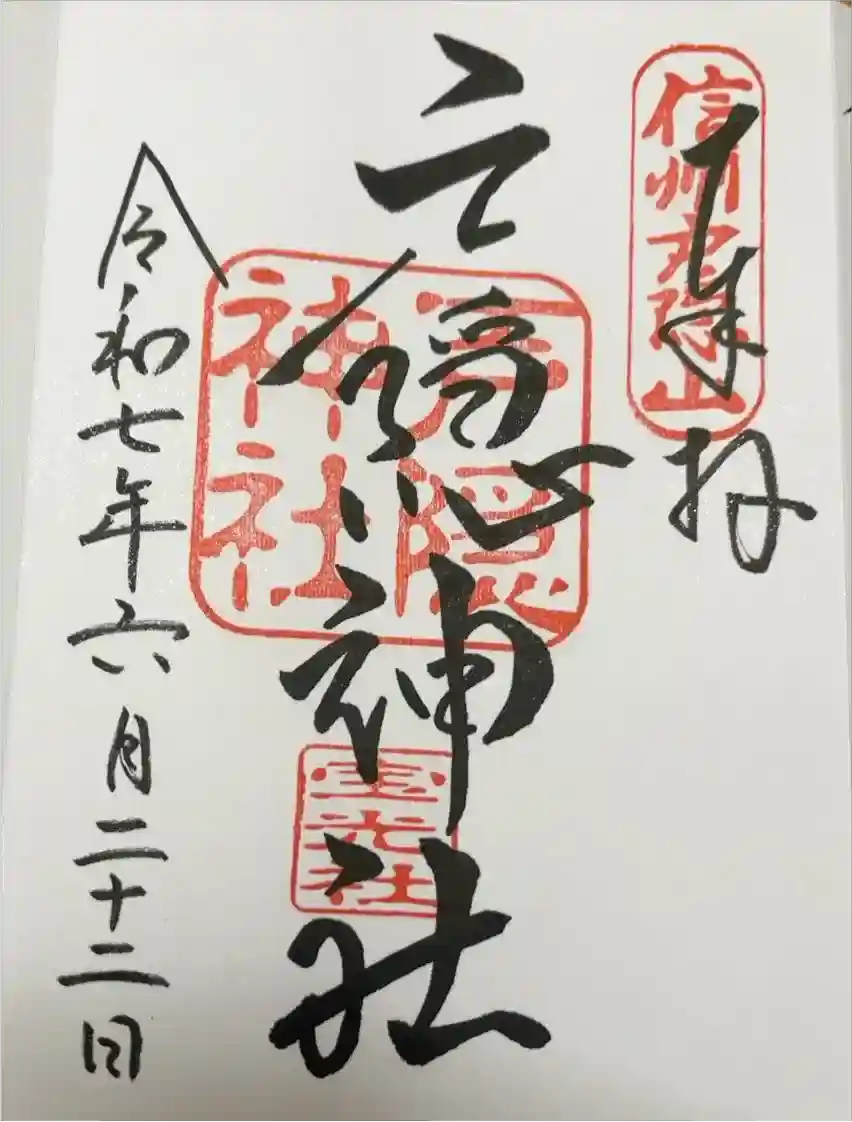 信州戸隠山
奉拝
戸隠神社
戸隠
神社
宝光社
令和七年六月二十二日